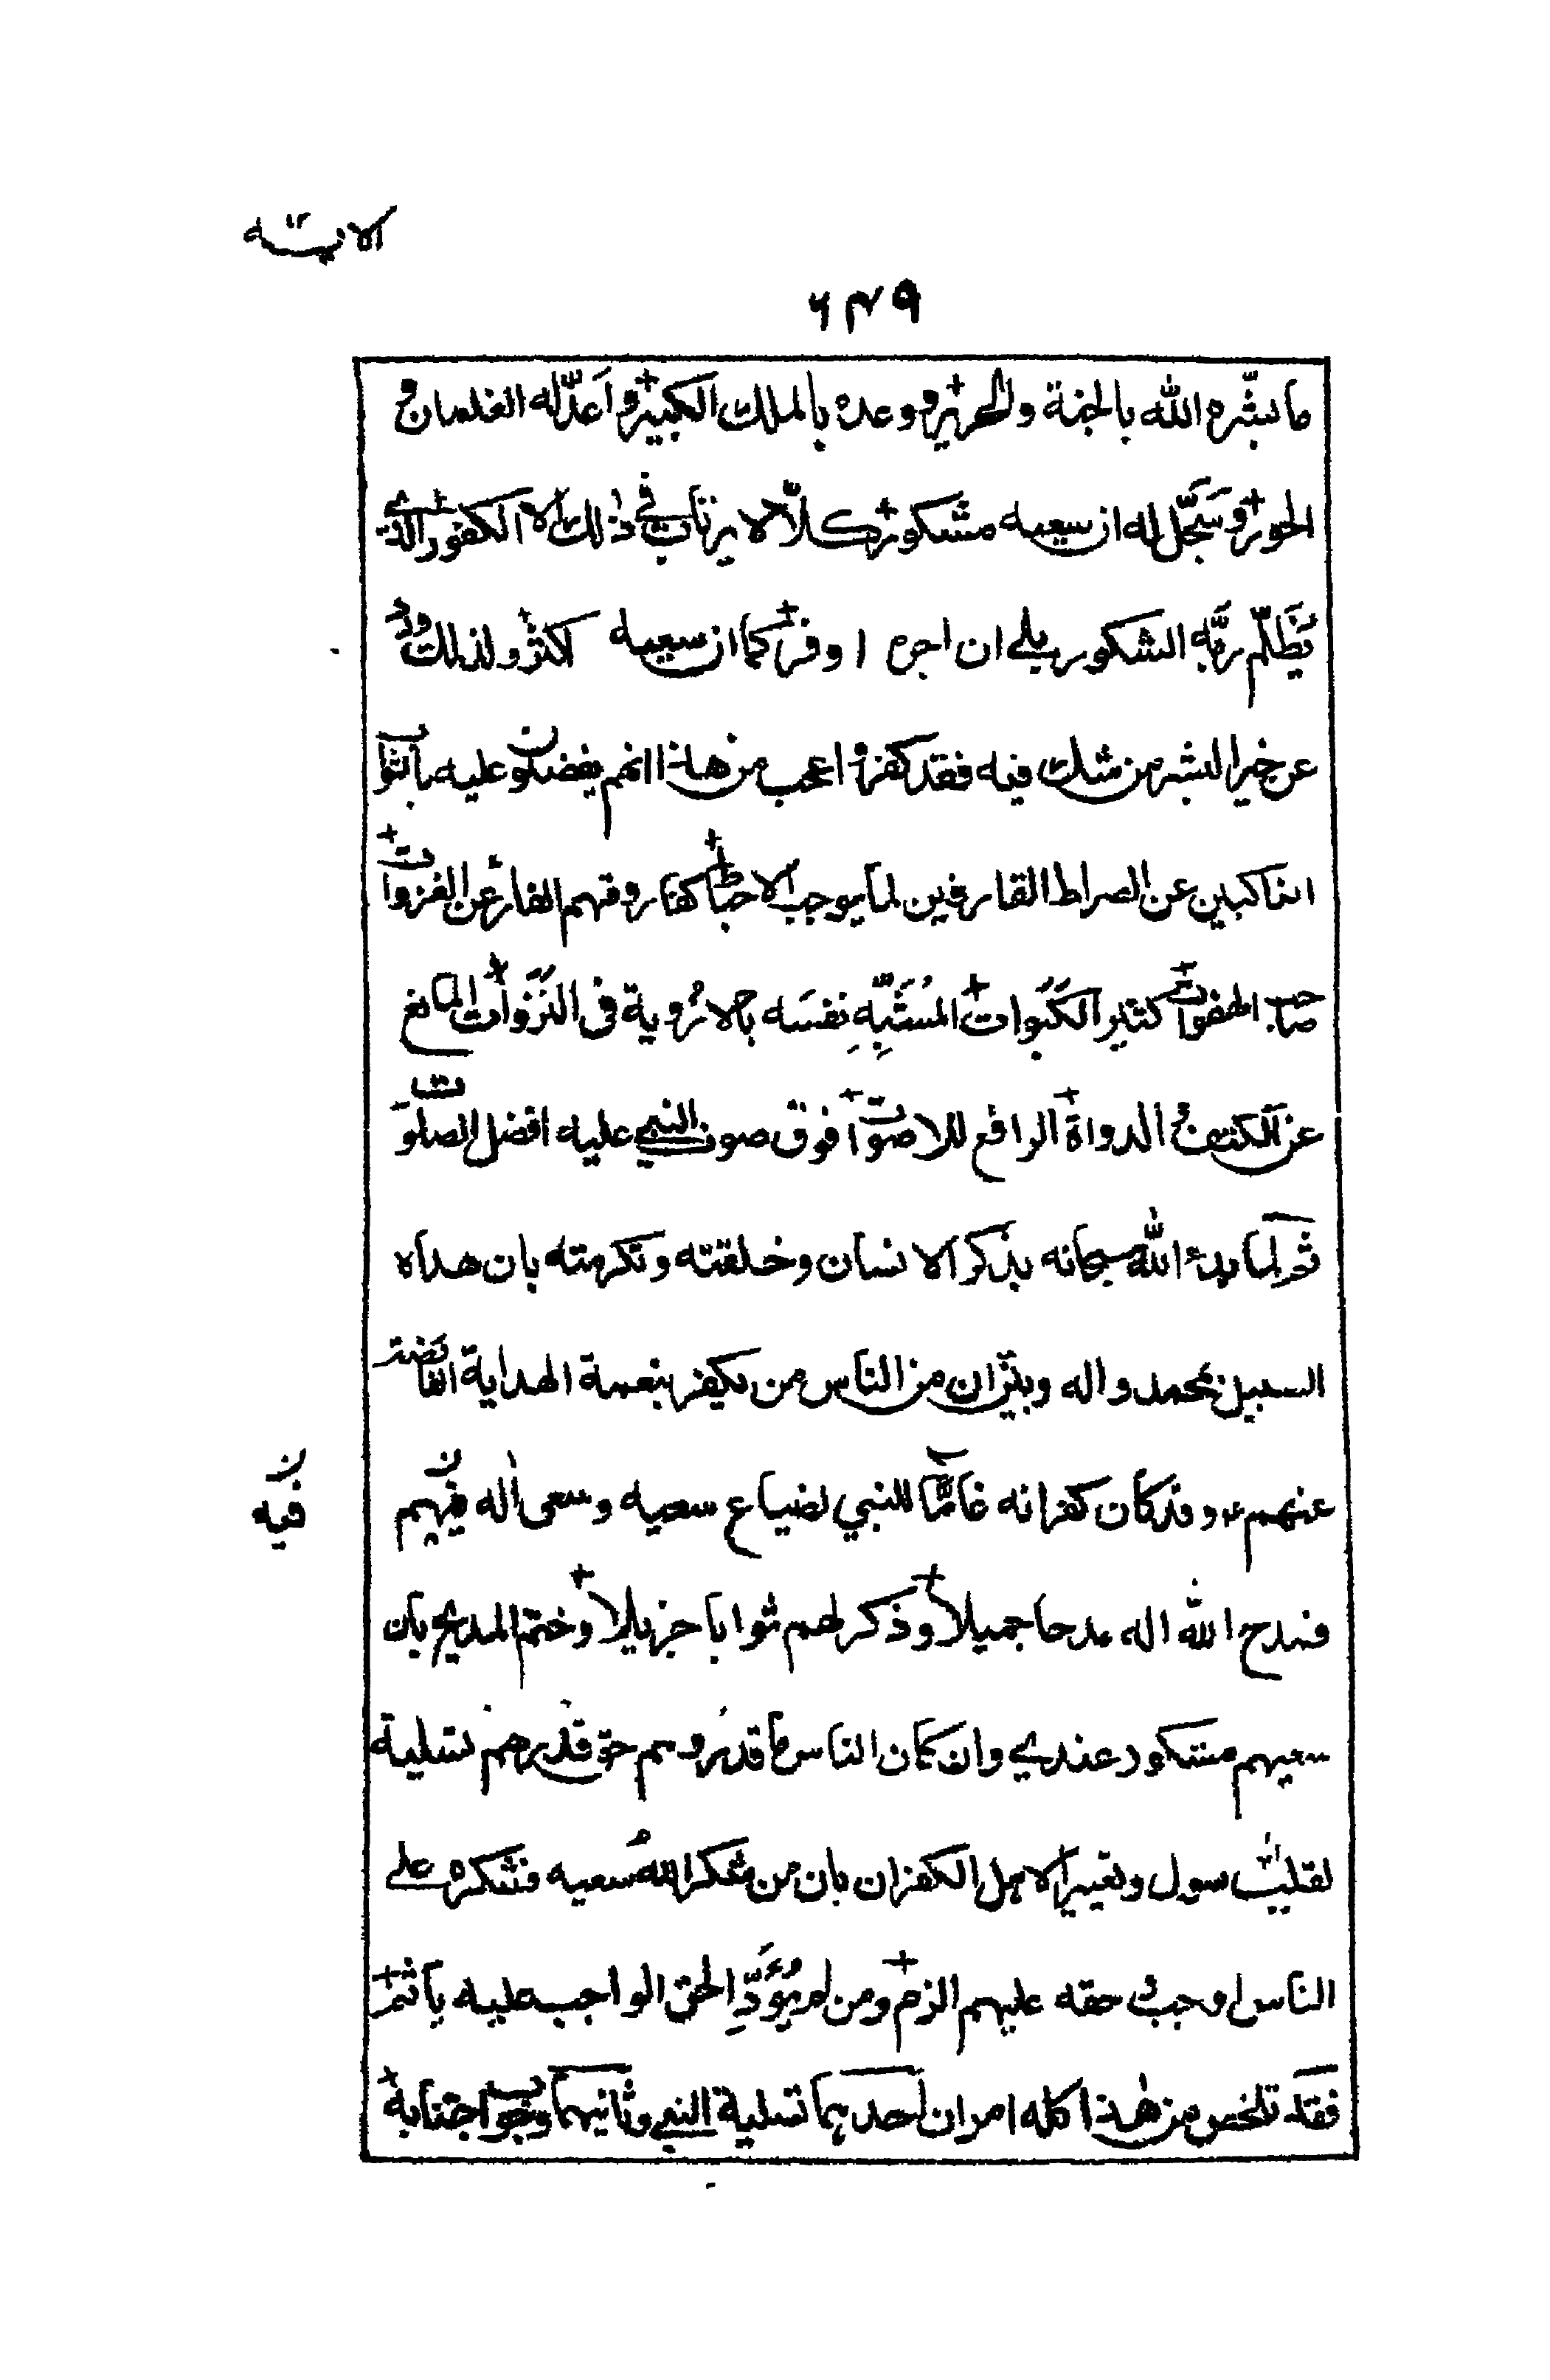 الآيته
٦٤٩
ما بشّره الله بالجنة والحرير ووعده بالملك الكبير واَعدّله الغلمان و
الحور وسَجَّل له ان سعيه مشكور كلّا لا يرتاب في ذلك الا الكفور الذي
يُظَلّم ربَّه الشكور بلى ان اجره اوفر كما ان سعيه اكثر ولذلك ورد
عن خير البشر من شك فيه فقد كفر و اعجب من هذا انهم يفضلون عليه بابتواب
الناكبين عن الصراط القارفين لما يوجب الاحباط كفاروقهم الفار عن الغزوات
صاحب الهفوات كثير الكَبَوات المُشَبِّهِ نفسَه بالاروية في النَزَوات المانع
عن الكتف و الدواة الرافع للاصوات فوق صوت النبي عليه افضل الصلوات
ثم لما بدء الله سبحانه بذكر الانسان وخلقته وتكرمته بان هداه
السبيل بمحمد واله وبيّن ان من الناس من يكفر بنعمة الهداية الفائضة
عنهم ء وقد كان كفرانه غامًّا للنبي لضياع سعيه وسعى اٰله فيهم
فيه
فمدح الله اله مدحا جميلا وذكر لهم ثوابا جزيلا وختم المديح بان
سعيهم مشكور عندي وان كان الناس ما قدروهم حق قدرهم تسلية
لقلب رسول وتعييرا لاهل الكفران بان من شكر اللهُ سعيه فشكره على
الناس اوجب و حقه عليهم الزم ومن لم يُؤَدِّ الحق الواجب عليه ياثم
فقد تلخص من هٰذا كله امران احدهما تسلية النبي وثانيهما وجوب اجتنابه